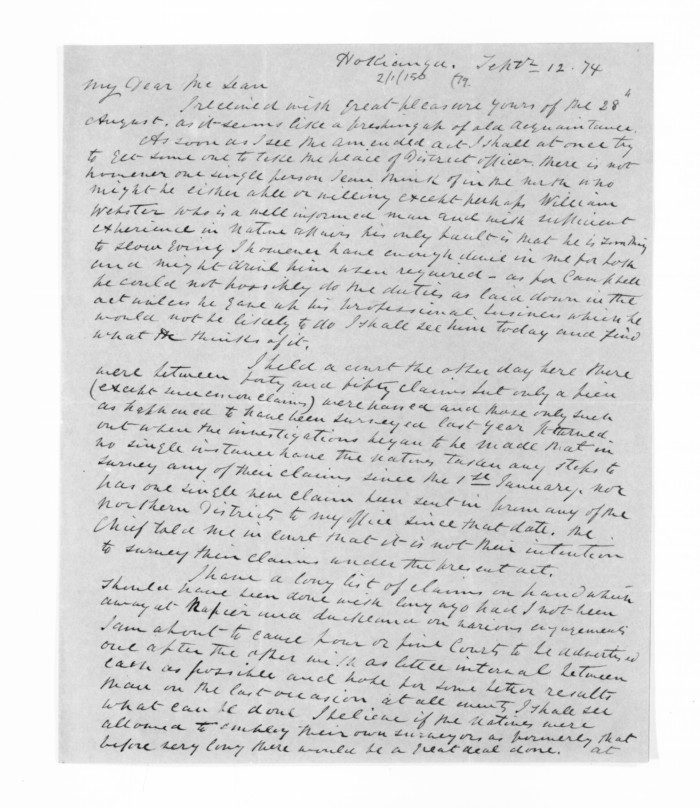 Hokianga. Septr 12. 74
2/1/150 /79
My Dear McLean
I received with great pleasure yours of the 28"
August. as it seems like a freshing up of old acquaintance.
As soon as I see the amended act I shall at once try
to get some one to take the place of District officer. there is not
however one single person I can think of in the north who
might be either able or willing except perhaps William
Webster who is a well informed man and with sufficient
experience in native affairs his only fault is that he is something
to slow going I however have enough devil in me for both
and might drive him when required - as for Campbell
he could not possibly do the duties as laid down in the
act unless he gave up his professional business which he
would not be likely to do I shall see him today and find
what he thinks of it.
I held a court the other day here there
were between forty and fifty claims but only a few
(except succession claims) were passed and those only such
as happened to have been surveyed last year it turned
out when the investigations began to be made that in
no single instance have the natives taken any steps to
survey any of their claims since the 1st January. nor
has one single new claim been sent in from any of the
northern Districts to my office since that date. the
Chief told me in court that it is not their intention
to survey their claims under the present act.
I have a long list of claims on hand which
should have been done with long ago had I not been
away at Napier and Auckland on various engagements
I am about to cause four or five Courts to be advertised
one after the other with as little interval between
each as possible and hope for some better results
than on the last occasion at all events I shall see
what can be done I believe if the natives were
allowed to employ their own surveyors as formerly that
before very long there would be a great deal done. at